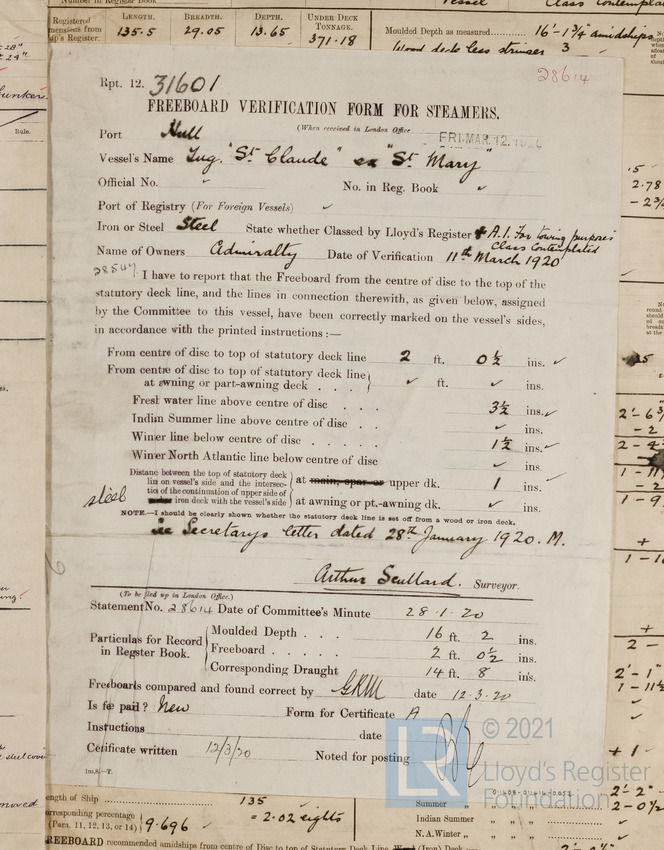 Registered
LENGTH. BREADTH. DEPTH. UNDER DECK TONNAGE.
135.5 29.05 13.65 371.18
Moulded Depth as measured 16'-1¾" amidships
Wood deck less stringer 3
28614
Rpt. 12. 31601
FREEBOARD VERIFICATION FORM FOR STEAMERS.
(When received in London Office
FRI. MAR. 12.
Port Hull
Vessel's Name Tug. "St Claude" ex "St Mary"
Official No. No. in Reg. Book
Port of Registry (For Foreign Vessels)
Iron or Steel Steel State whether Classed by Lloyd's Register A.1. For towing purposes
Class Contemplated
Name of Owners Admiralty Date of Verification 11th March 1920
I have to report that the Freeboard from the centre of disc to the top of the
statutory deck line, and the lines in connection therewith, as given below, assigned
by the Committee to this vessel, have been correctly marked on the vessel's sides,
in accordance with the printed instructions :—
From centre of disc to top of statutory deck line 2 ft. 0½ ins.
From centre of disc to top of statutory deck line
at awning or part-awning deck . . . ft. ins.
Fresh water line above centre of disc . . . 3½ ins.
Indian Summer line above centre of disc . . ins.
Winter line below centre of disc . . . . . 1½ ins.
Winter North Atlantic line below centre of disc ins.
Distance between the top of statutory deck
line on vessel's side and the intersec-
tion of the continuation of upper side of
steel iron deck with the vessel's side
at main, spar or upper dk. 1 ins.
at awning or pt.-awning dk. ins.
NOTE.—I should be clearly shown whether the statutory deck line is set off from a wood or iron deck.
See Secretarys letter dated 28th January 1920. M.
Arthur Scullard. Surveyor.
(To be filled up in London Office.)
Statement No. 28614 Date of Committee's Minute 28.1.20
Particulas for Record
in Regster Book.
Moulded Depth . . . 16 ft. 2 ins.
Freeboard . . . . . 2 ft. 0½ ins.
Corresponding Draught 14 ft. 8 ins.
Freeboards compared and found correct by GRM date 12.3.20
Is fee paid? New Form for Certificate A
Instructions date
Certificate written 12/3/20 Noted for posting
1m,8.—T.
LR
© 2021
Lloyd's Register
Foundation
ength of Ship 135
orresponding percentage
(Para. 11, 12, 13, or 14) 9.696 = 2.02 eights
Summer
Indian Summer
N. A. Winter